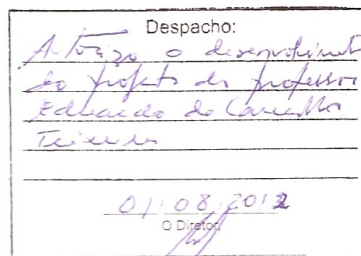 Despacho:
Autorizo o desenvolvimento
do projeto do professor
Eduardo de Carvalho
Teixeira
01/08/2012
O Diretor